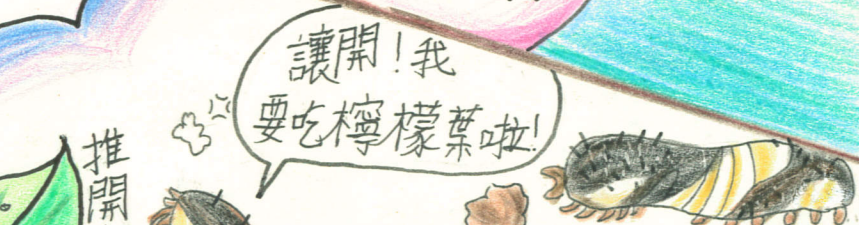 讓開！我
要吃檸檬葉啦！
推開